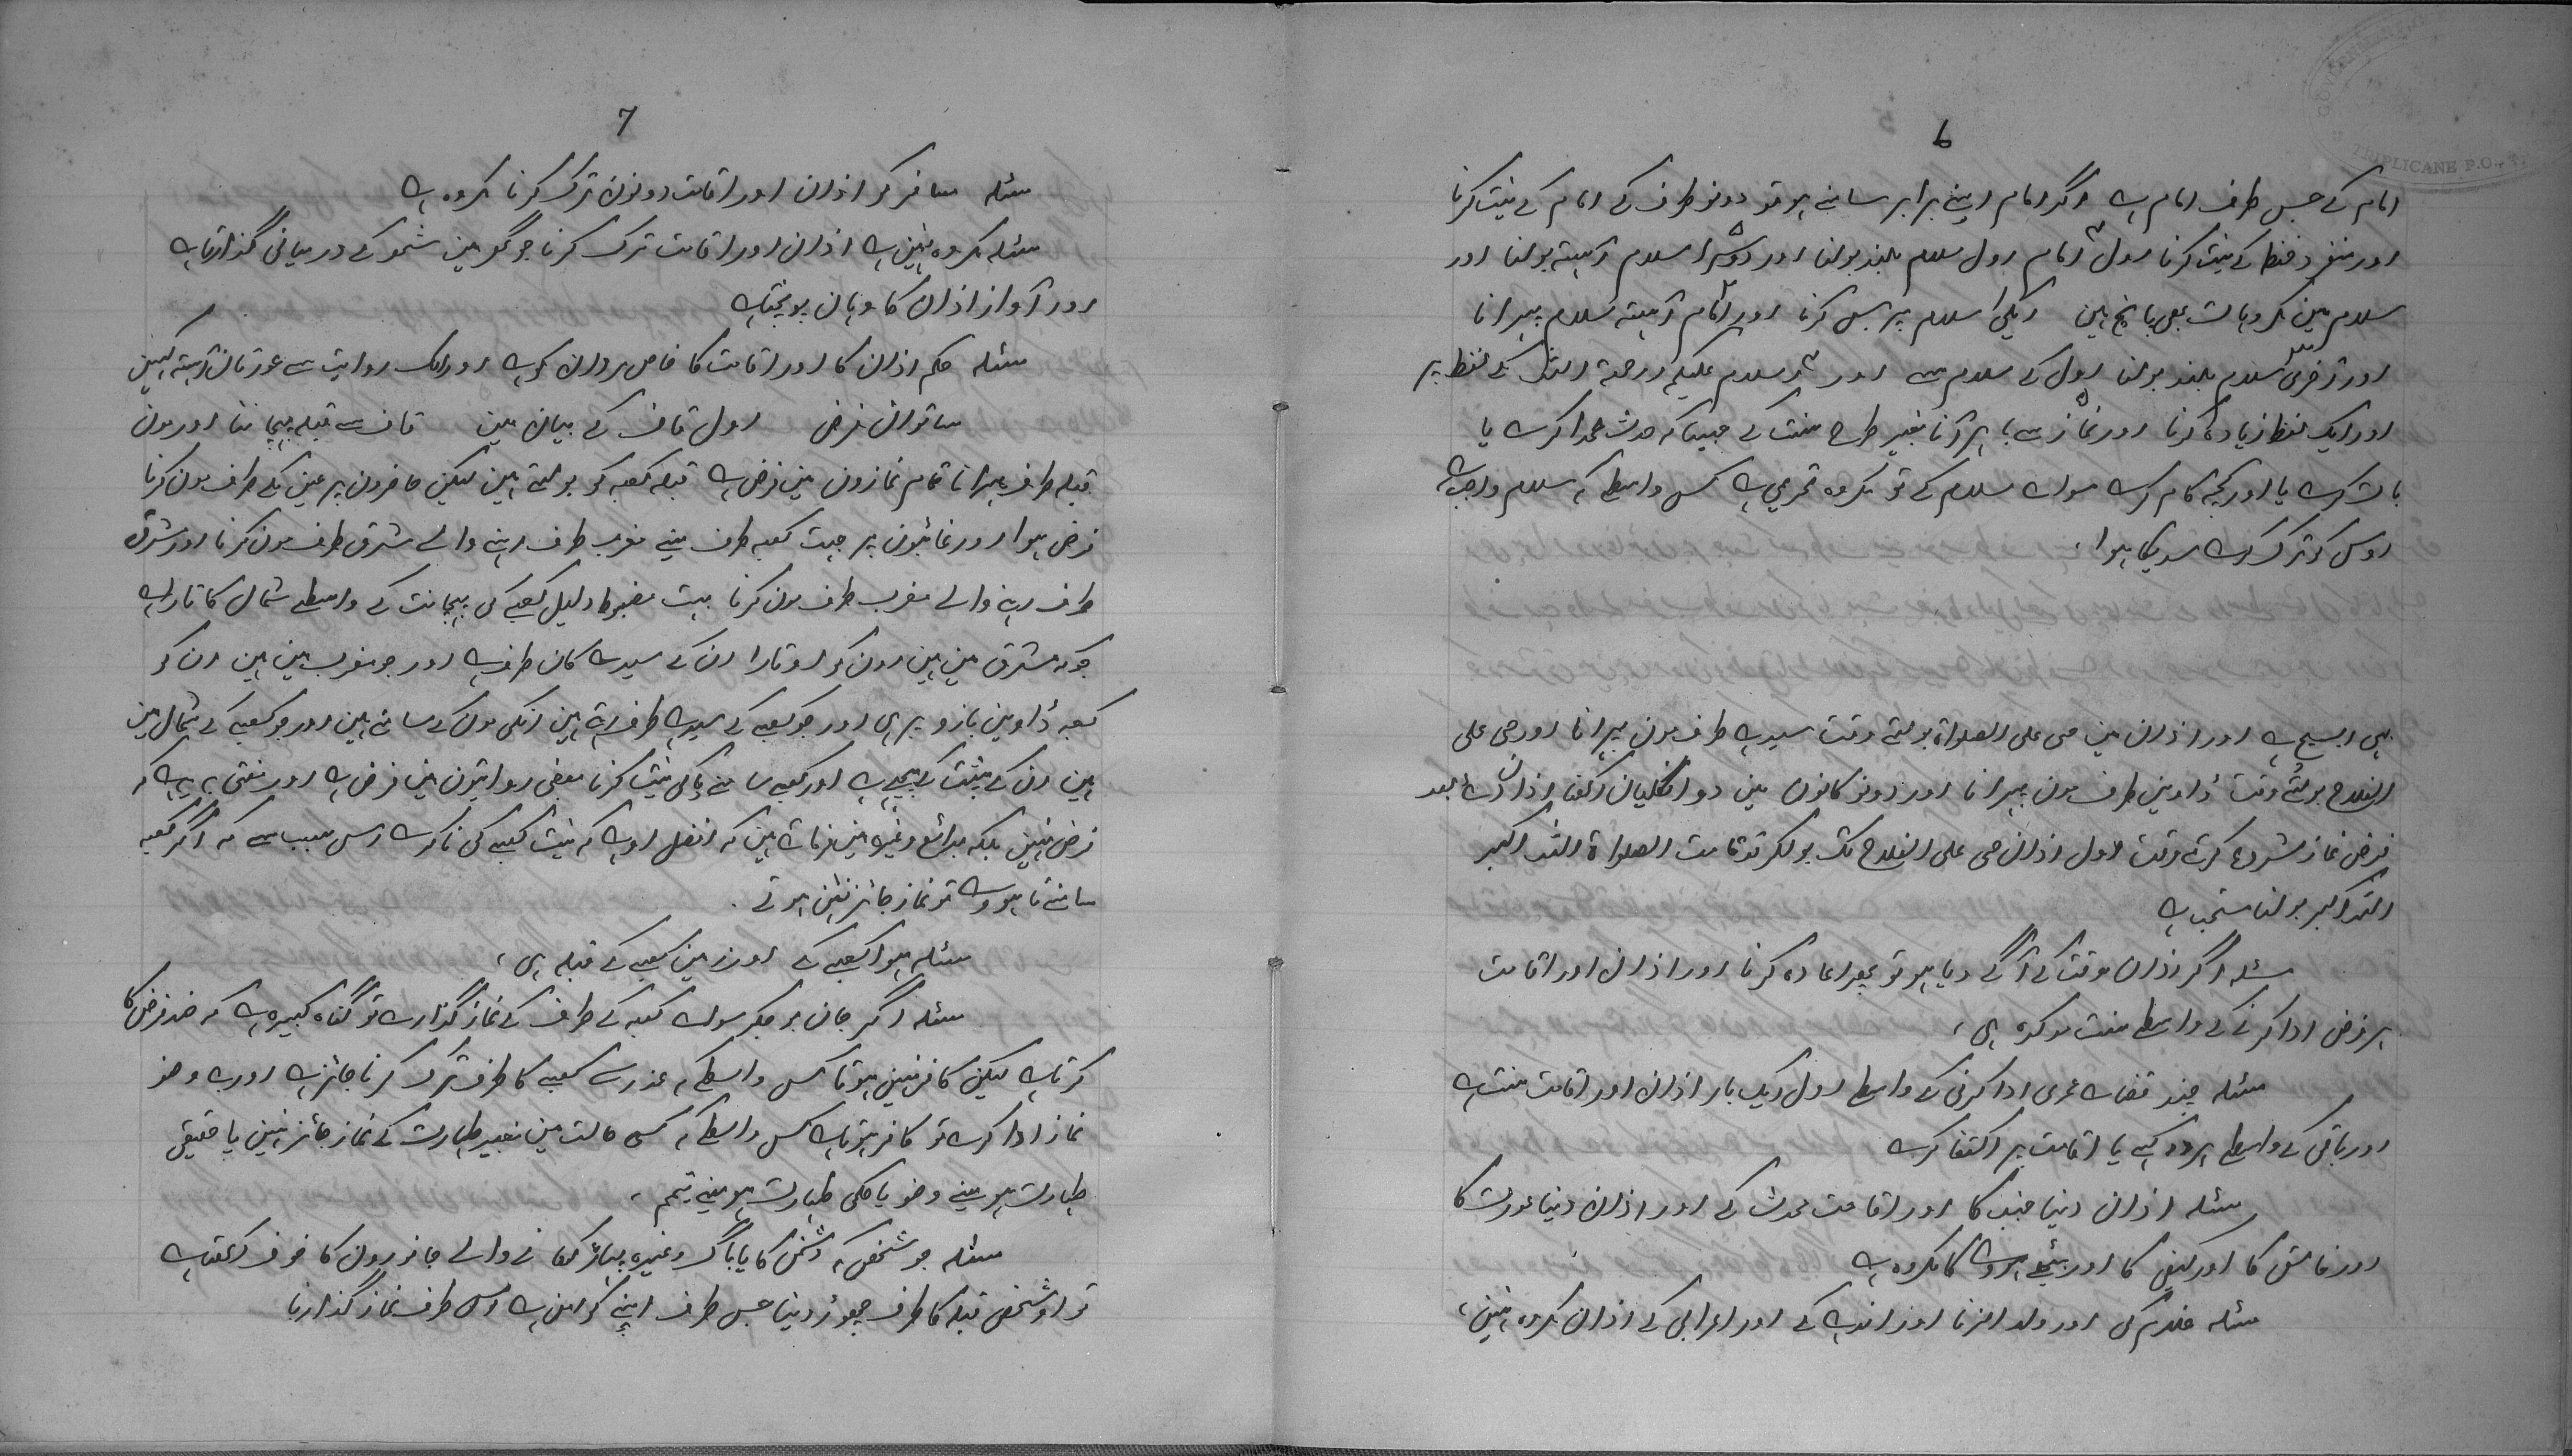 6
امام کے جس طرف امام ہے اگر امام اپنے برابر سامنے ہو تو دونو طرف کے امام کے نیت کرنا
اور منفرد فقط کے نیت کرنا اول امام اول سلام بلند بولنا اور دوسرا سلام آہستہ بولنا اور
سلام مین مکروہات بھی پانچ ہین ایکی سلام پر بس کرنا اور امام آہستہ سلام پھرانا
اور آخری سلام بلند بولنا اول کے سلام سے اور سلام علیکم ورحمۃ اللہ کے لفظ پر
اور ایک لفظ زیادہ کرنا اور نماز سے باہر آنا بغیر طرح سنت کے جیسا کہ حدث عمدا کرے یا
بات کرے یا اور کچھ کام کرے سواے سلام کے تو مکروہ تحریمی ہے کس واسطے کہ سلام واجب ہے
اوس کو ترک کرے سریکا ہوا
یہی ہے اور اذان مین حی علی الصلواۃ بولتے وقت سیدہے طرف مون پہرانا اور حی علی
الفلاح بولتے وقت ڈاوین طرف مون پہرانا اور دونو کانون مین دو انگلیان رکھنا اذان بعد
فرض نماز شروع کرتے وقت اول اذان حی علی الفلاح تک بولکر قد قامت الصلواۃ اللہ اکبر
اللہ اکبر بولنا مستحب ہے
مسئلہ اگر اذان وقت کے آگے دیا ہو تو پھر اعادہ کرنا اور اذان اور اقامت
ہر فرض ادا کرنے کے واسطے سنت موکدہ ہی
مسئلہ چند قضاے عمری ادا کرنی کے واسطے اول ایک بار اذان اور اقامت سنت ہے
اور باقی کے واسطے ہر دو کہے یا اقامت پر اکتفا کرے
مسئلہ اذان دینا جنب کا اور اقامت محدث کے اور اذان دینا عورت کا
اور فاسق کا اور کا اور بیٹھے کا مکروہ ہے
مسئلہ غلام کی اور ولد الزنا اور اندہے کے اور اعرابی کے اذان مکروہ نہین
7
مسئلہ مسافر کو اذان اور اقامت دونون ترک کرنا مکروہ ہے
مسئلہ مکروہ نہین ہے اذان اور اقامت ترک کرنا جو گھر مین شہر کے درمیانی گذارتا ہے
اور آواز اذان کا وہان پونچتا ہے
مسئلہ حکم اذان کا اور اقامت کا خاص مردان کو ہے اور ایک روایت سے عورتان آہستہ کہین
ساتوان فرض اول قاف کے بیان مین قاف سے قبلہ پہچاننا اور مون
قبلہ طرف پہرانا تمام نمازون مین فرض ہے قبلہ کعبہ کو بولتے ہین لیکن حاضرون پر عین کے طرف مون کرنا
فرض ہوا اور غائبون پر جہت کعبہ طرف یعنے مغرب طرف رہنے والے مشرق طرف مون کرنا اور مشرق
طرف رہنے والے مغرب طرف مون کرنا بہت مضبوط دلیل کعبے کی پہچانت کے واسطے شمال کا تارا ہے
جو کہ مشرق مین ہین اون کو او تارا ان کے سیدے کان طرف ہے اور جو مغرب مین ہین ان کو
کعبہ ڈاوین بازو پر ہی اور جو کعبے کے سیدہے طرف رہتے ہین انکی مون کے سامنے ہین اور جو کعبے کے شمال مین
ہین ان کے پشت کے پیچہے ہے اور کعبے سامنے کی نیت کرنا بعضی روایتون مین فرض ہے اور مفتی بہ یہ ہے کہ
فرض نہین بلکہ بدائع وغیرہ مین فرماتے ہین کہ افضل او ہے کہ نیت کعبے کی نا کرے اس سبب سے کہ اگر کعبہ
سامنے نا ہووے تو نماز جائز نہین ہوتے
مسئلہ ہوا کعبے کے اور زمین کعبے کے قبلہ ہی
مسئلہ اگر جان بوجکر سواے کعبہ کے طرف کے نماز گذارے تو گناہ کبیرہ ہے کہ ضد فرض کا
کرتا ہے لیکن کافر نہین ہوتا کس واسطے کہ عذر سے کعبے کا طرف ترک کرنا جائز ہے اور بے وضو
نماز ادا کرے تو کافر ہوتا ہے کس واسطے کہ کسی حالت مین بغیر طہارت کے نماز جائز نہین یا حقیقی
طہارت ہو یعنے وضو یا حکمی طہارت ہو یعنے تیمم
مسئلہ جو شخص کہ دشمن کا یا باگ وغیرہ پھاڑ کھانے والے جانورون کا خوف رکھتا ہے
تو او شخص قبلہ کا طرف چھوڑ دینا جس طرف اپنے کو امن ہے اوس طرف نماز گذارنا